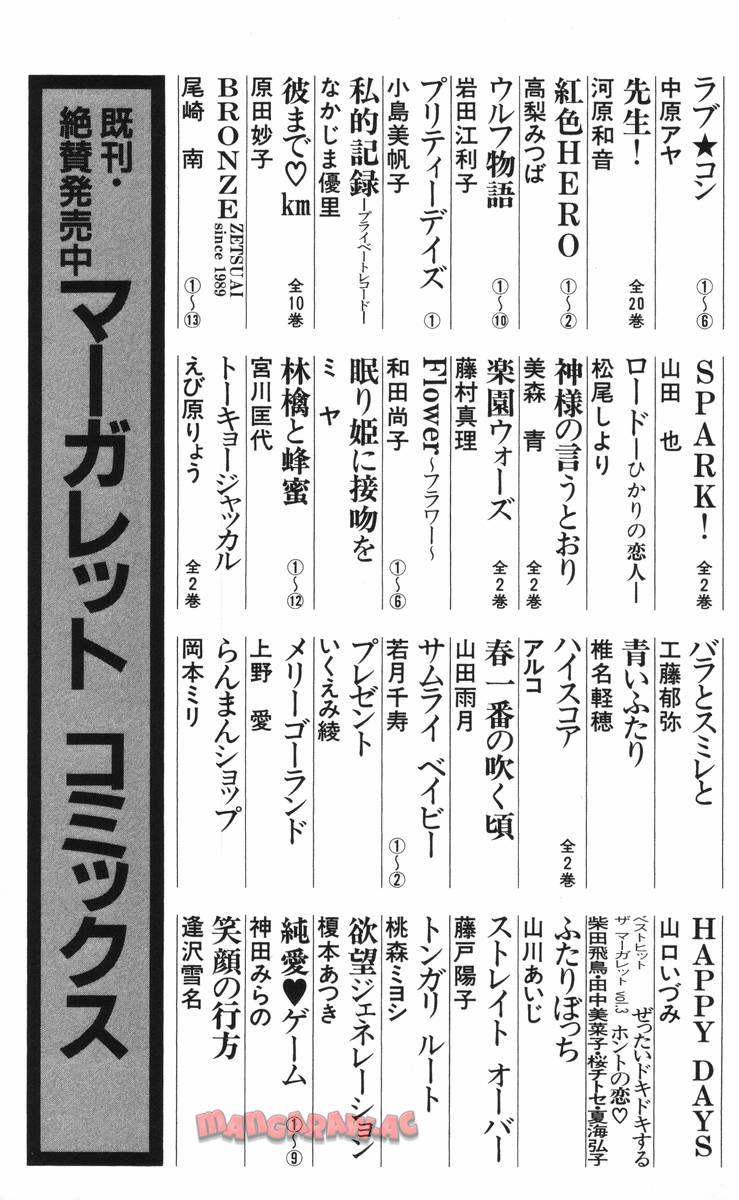 ラブ★コン
中原アヤ
①〜⑥
先生!
河原和音
全20巻
紅色HERO
高梨みつば
①〜②
ウルフ物語
岩田江利子
①〜⑩
プリティーデイズ
小島美帆子
①
私的記録―プライベートレコード―
なかじま優里
彼まで♡km
原田妙子
全10巻
BRONZE ZETSUAI since 1989
尾崎 南
①〜⑬
SPARK!
山田 也
全2巻
ロード―ひかりの恋人―
松尾しより
神様の言うとおり
美森 青
全2巻
楽園ウォーズ
藤村真理
全2巻
Flower〜フラワー〜
和田尚子
①〜⑥
眠り姫に接吻を
ミヤ
林檎と蜂蜜
宮川匡代
①〜⑫
トーキョージャッカル
えび原りょう
全2巻
バラとスミレと
工藤郁弥
青いふたり
椎名軽穂
ハイスコア
アルコ
全2巻
春一番の吹く頃
山田雨月
サムライ ベイビー
若月千寿
①〜②
プレゼント
いくえみ綾
メリーゴーランド
上野 愛
らんまんショップ
岡本ミリ
HAPPY DAYS
山口いづみ
ベストヒット
ザ マーガレット vol.3
ぜったいドキドキする
ホントの恋♡
柴田飛鳥・田中美菜子・桜チトセ・夏海弘子
ふたりぼっち
山川あいじ
ストレイト オーバー
藤戸陽子
トンガリ ルート
桃森ミヨシ
欲望ジェネレーション
榎本あつき
純愛♥ゲーム
神田みらの
①〜⑨
笑顔の行方
逢沢雪名
既刊・
絶賛発売中
マーガレット コミックス
MANGARAW.AC